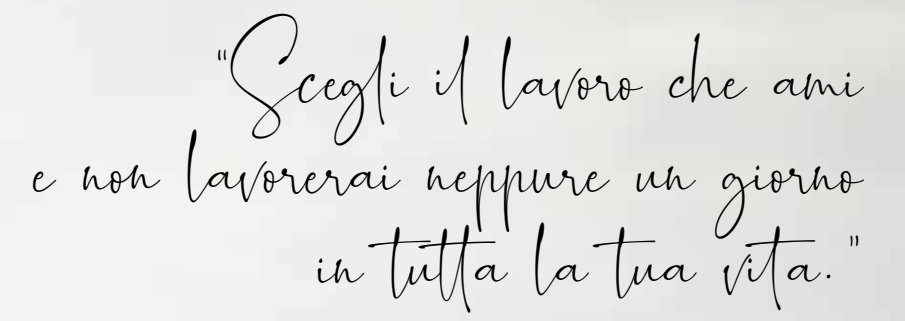 "Scegli il lavoro che ami
e non lavorerai neppure un giorno
in tutta la tua vita."